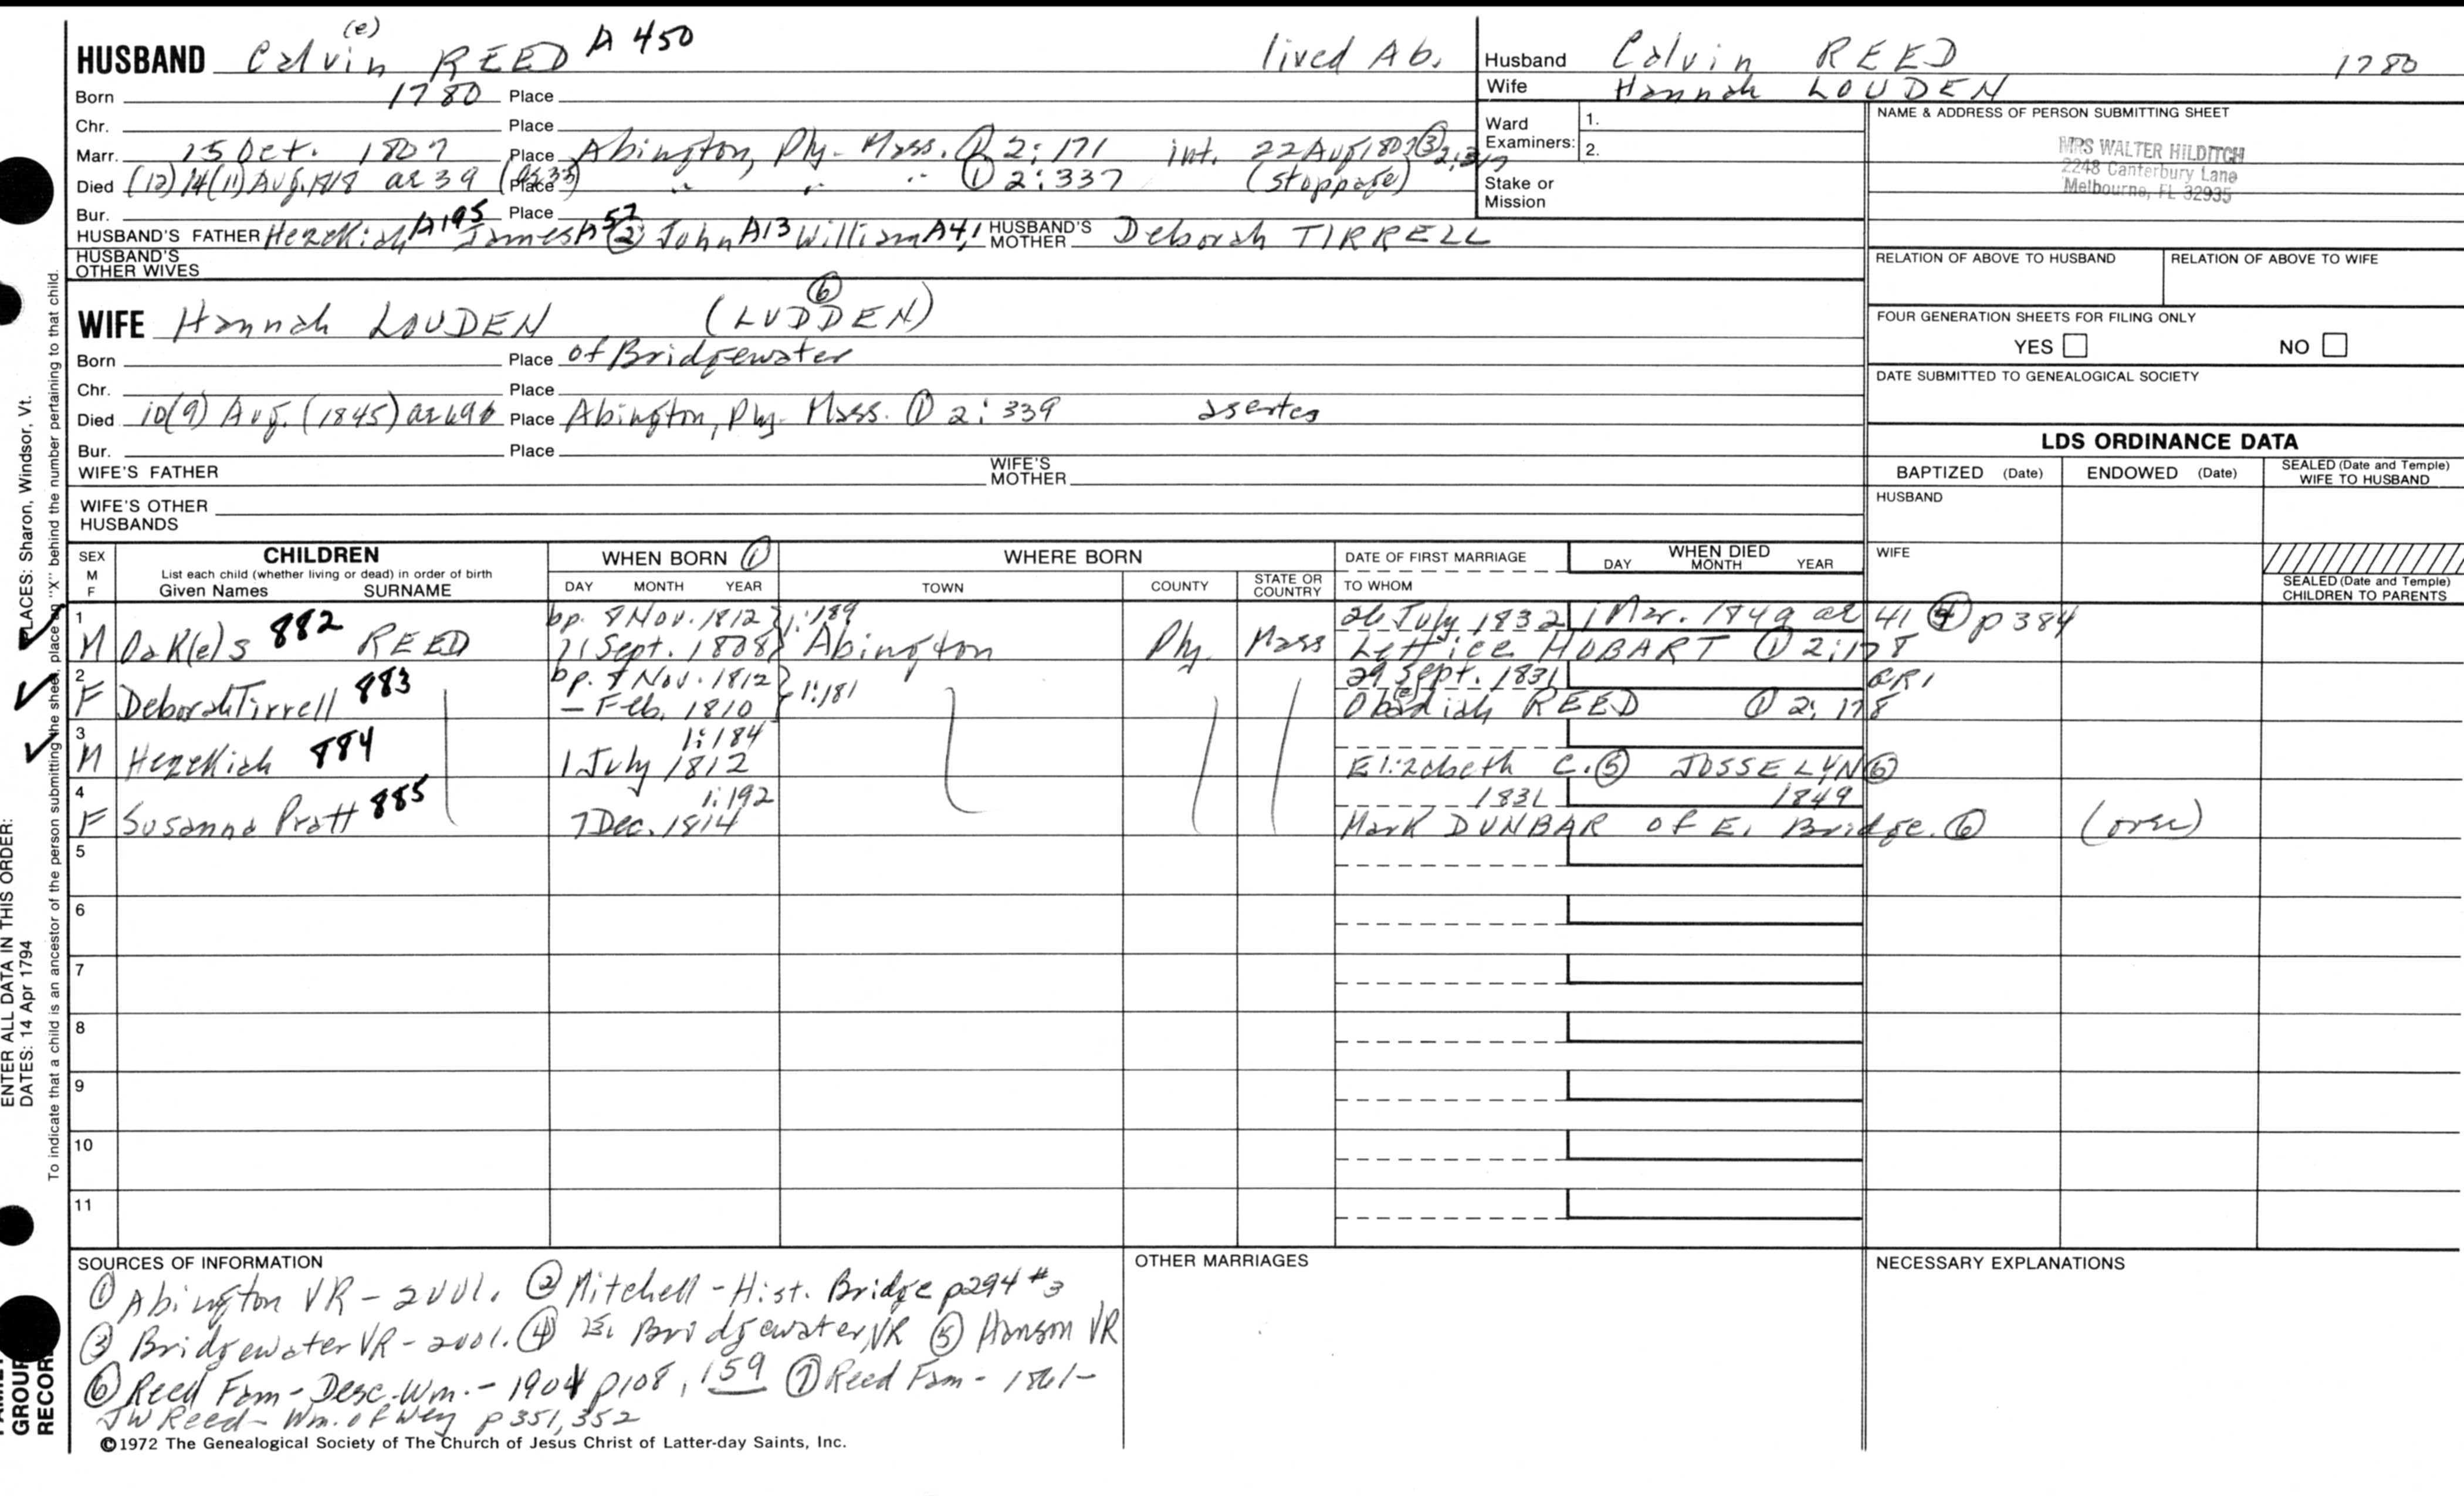 HUSBAND Calvin (e) REED A 450 lived Ab.
Born 1780 Place
Chr. Place
Marr. 15 Oct. 1807 Place Abington, Ply. Mass. ① 2:171 int. 22 Aug 1807 ③ 2:317
Died (12) 14 (11) Aug. 1818 ae 39 (ae 35) Place " " " ① 2:337 (stoppage)
Bur. Place
HUSBAND'S FATHER Hezekiah A195 James A57 ② John A13 William A4,1 HUSBAND'S MOTHER Deborah TIRRELL
HUSBAND'S OTHER WIVES
WIFE Hannah LOUDEN (LUDDEN) ⑥
Born Place of Bridgewater
Chr. Place
Died 10(9) Aug. (1845) Place Abington, Ply. Mass. ① 2:339
Bur. Place
WIFE'S FATHER WIFE'S MOTHER
WIFE'S OTHER HUSBANDS
Husband Calvin REED 1780
Wife Hannah LOUDEN
Ward Examiners: 1.
2.
Stake or Mission
NAME & ADDRESS OF PERSON SUBMITTING SHEET
MRS WALTER HILDITCH
2248 Canterbury Lane
Melbourne, FL 32935
RELATION OF ABOVE TO HUSBAND RELATION OF ABOVE TO WIFE
FOUR GENERATION SHEETS FOR FILING ONLY
YES NO
DATE SUBMITTED TO GENEALOGICAL SOCIETY
LDS ORDINANCE DATA
BAPTIZED (Date) ENDOWED (Date) SEALED (Date and Temple) WIFE TO HUSBAND
HUSBAND
WIFE
SEALED (Date and Temple) CHILDREN TO PARENTS
SEX M F CHILDREN WHEN BORN ① WHERE BORN DATE OF FIRST MARRIAGE WHEN DIED
List each child (whether living or dead) in order of birth DAY MONTH YEAR TOWN COUNTY STATE OR COUNTRY TO WHOM DAY MONTH YEAR
Given Names SURNAME
1 bp. 8 Nov. 1812 1:189 26 July 1832 1 Mar. 1849 ae 41 ④ p 384
M Oak(e)s 882 REED 21 Sept. 1808 Abington Ply. Mass Lettice HOBART ① 2:178
2 bp. 8 Nov. 1812 1:181 29 Sept. 1831 CR1
F Deborah Tirrell 883 – Feb. 1810 Obadiah (e) REED ① 2:178
3 1:184
M Hezekiah 884 1 July 1812 Elizabeth C. ⑤ JOSSELYN ⑥
4 1:192 1831 1849
F Susanna Pratt 885 7 Dec. 1814 Mark DUNBAR of E. Bridge. ⑥ (over)
5
6
7
8
9
10
11
SOURCES OF INFORMATION
① Abington VR – 2 vol. ② Mitchell – Hist. Bridge p294 #3
③ Bridgewater VR – 2 vol. ④ E. Bridgewater VR ⑤ Hanson VR
⑥ Reed Fam – Desc. Wm. – 1904 p108, 159 ⑦ Reed Fam – 1861 –
JW Reed – Wm. of Wey p 351, 352
OTHER MARRIAGES
NECESSARY EXPLANATIONS
©1972 The Genealogical Society of The Church of Jesus Christ of Latter-day Saints, Inc.
ENTER ALL DATA IN THIS ORDER:
DATES: 14 Apr 1794 PLACES: Sharon, Windsor, Vt.
To indicate that a child is an ancestor of the person submitting the sheet, place an "X" behind the number pertaining to that child.
GROUP
RECORD